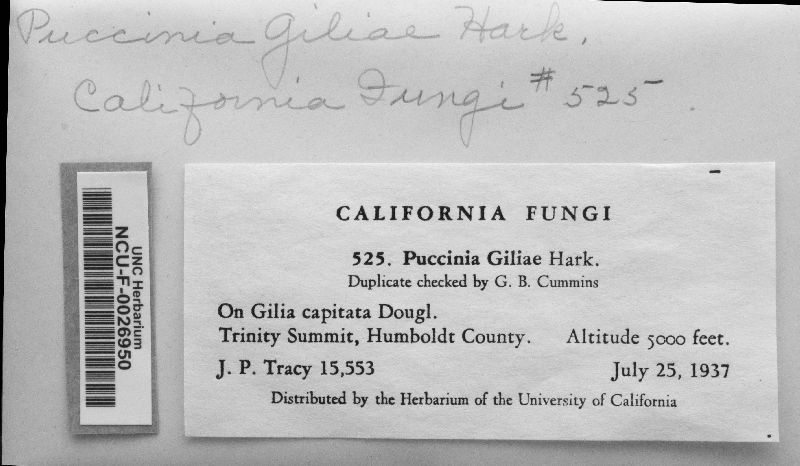 Puccinia Giliae Hark.
California Fungi # 525.
UNC Herbarium
NCU-F-0026950
CALIFORNIA FUNGI
525. Puccinia Giliae Hark.
Duplicate checked by G. B. Cummins
On Gilia capitata Dougl.
Trinity Summit, Humboldt County. Altitude 5000 feet.
J. P. Tracy 15,553 July 25, 1937
Distributed by the Herbarium of the University of California